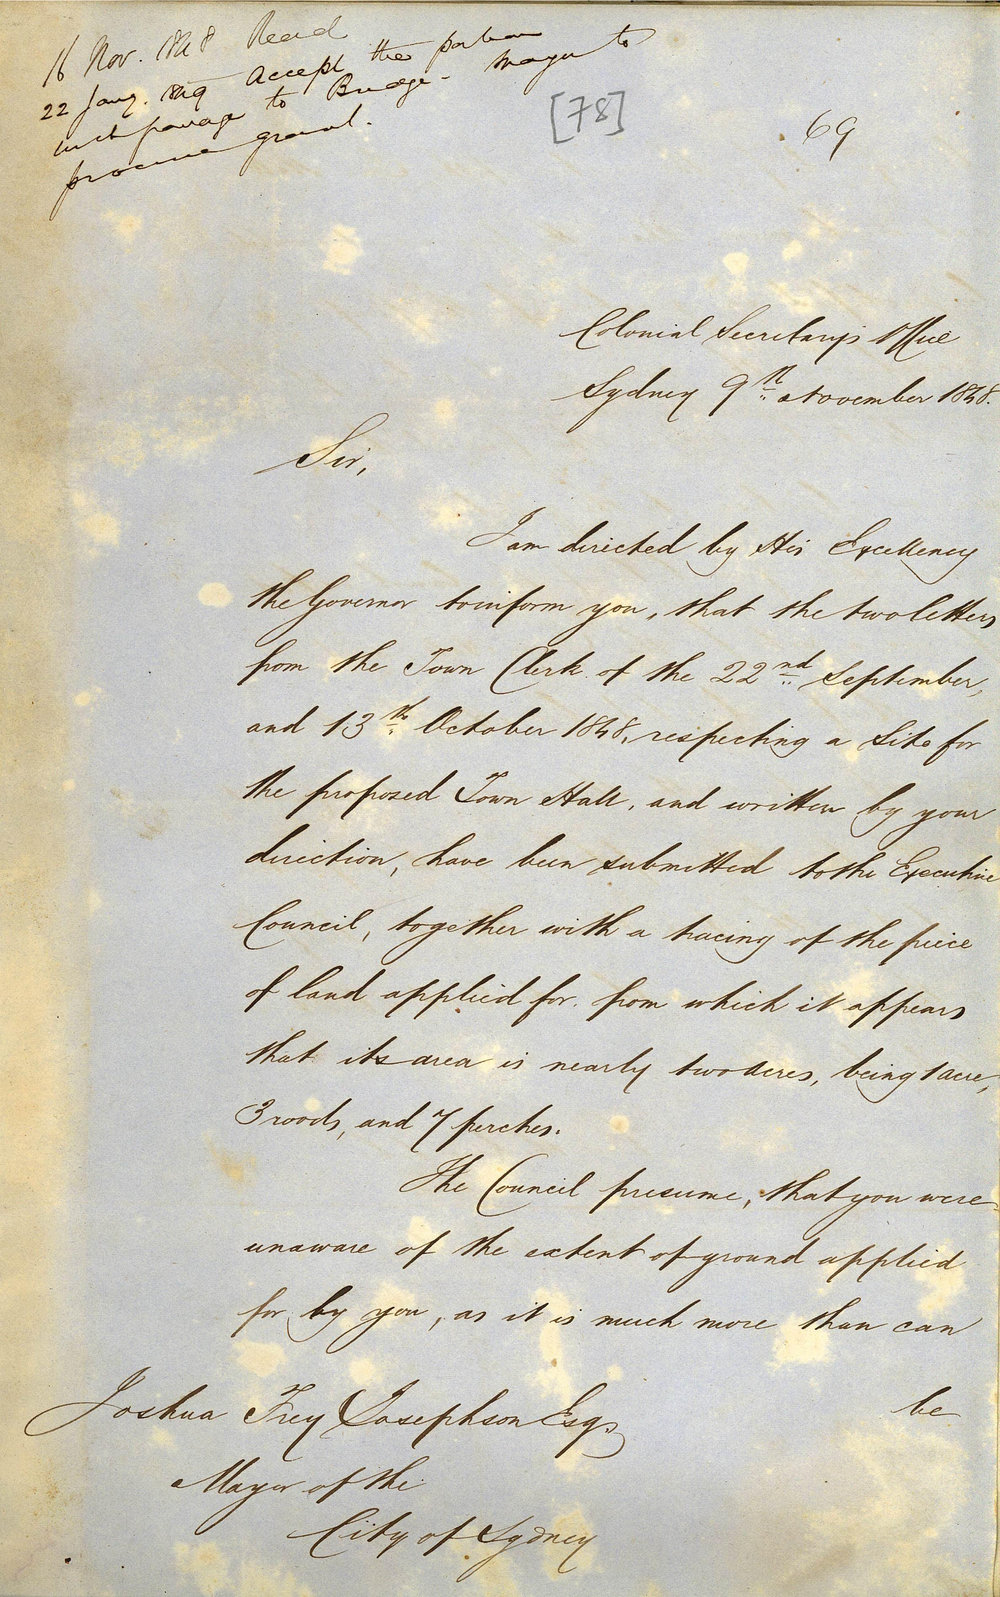 16 Nov. 1848 Read
22 Jany. 1849 Accept the portion
with passage to Bridge - Mayor to
procure grant.
[78]
69
Colonial Secretary's Office
Sydney 9th November 1848.
Sir,
I am directed by His Excellency
the Governor to inform you, that the two letters
from the Town Clerk of the 22nd September,
and 13th October 1848, respecting a Site for
the proposed Town Hall, and written by your
direction, have been submitted to the Executive
Council, together with a tracing of the piece
of land applied for, from which it appears
that its area is nearly two acres, being 1 acre,
3 roods, and 7 perches.
The Council presume, that you were
unaware of the extent of ground applied
for by you, as it is much more than can
be
Joshua Frey Josephson Esqr.
Mayor of the
City of Sydney